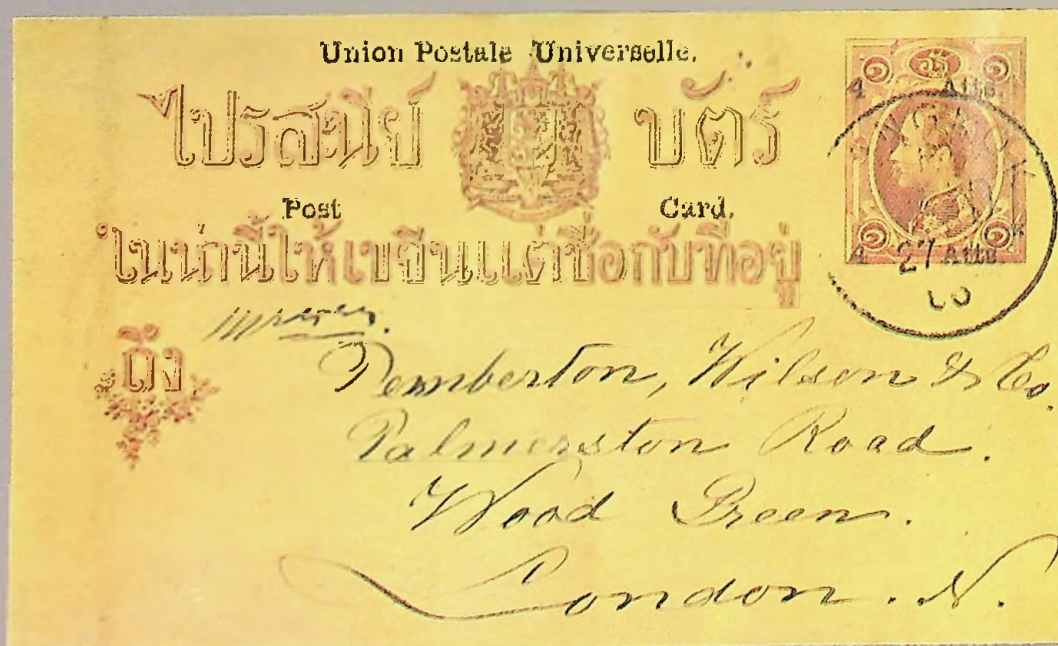 Union Postale Universelle.
ไปรสนีย์ บัตร์
Post Card.
ในน่านี้ให้เขียนแต่ชื่อกับที่อยู่
ถึง
Messrs.
Pemberton, Wilson & Co.
Palmerston Road.
Wood Green.
London. N.
๑ ๑
4 Atts
BANGKOK
27
๑ ๑
4 Atts